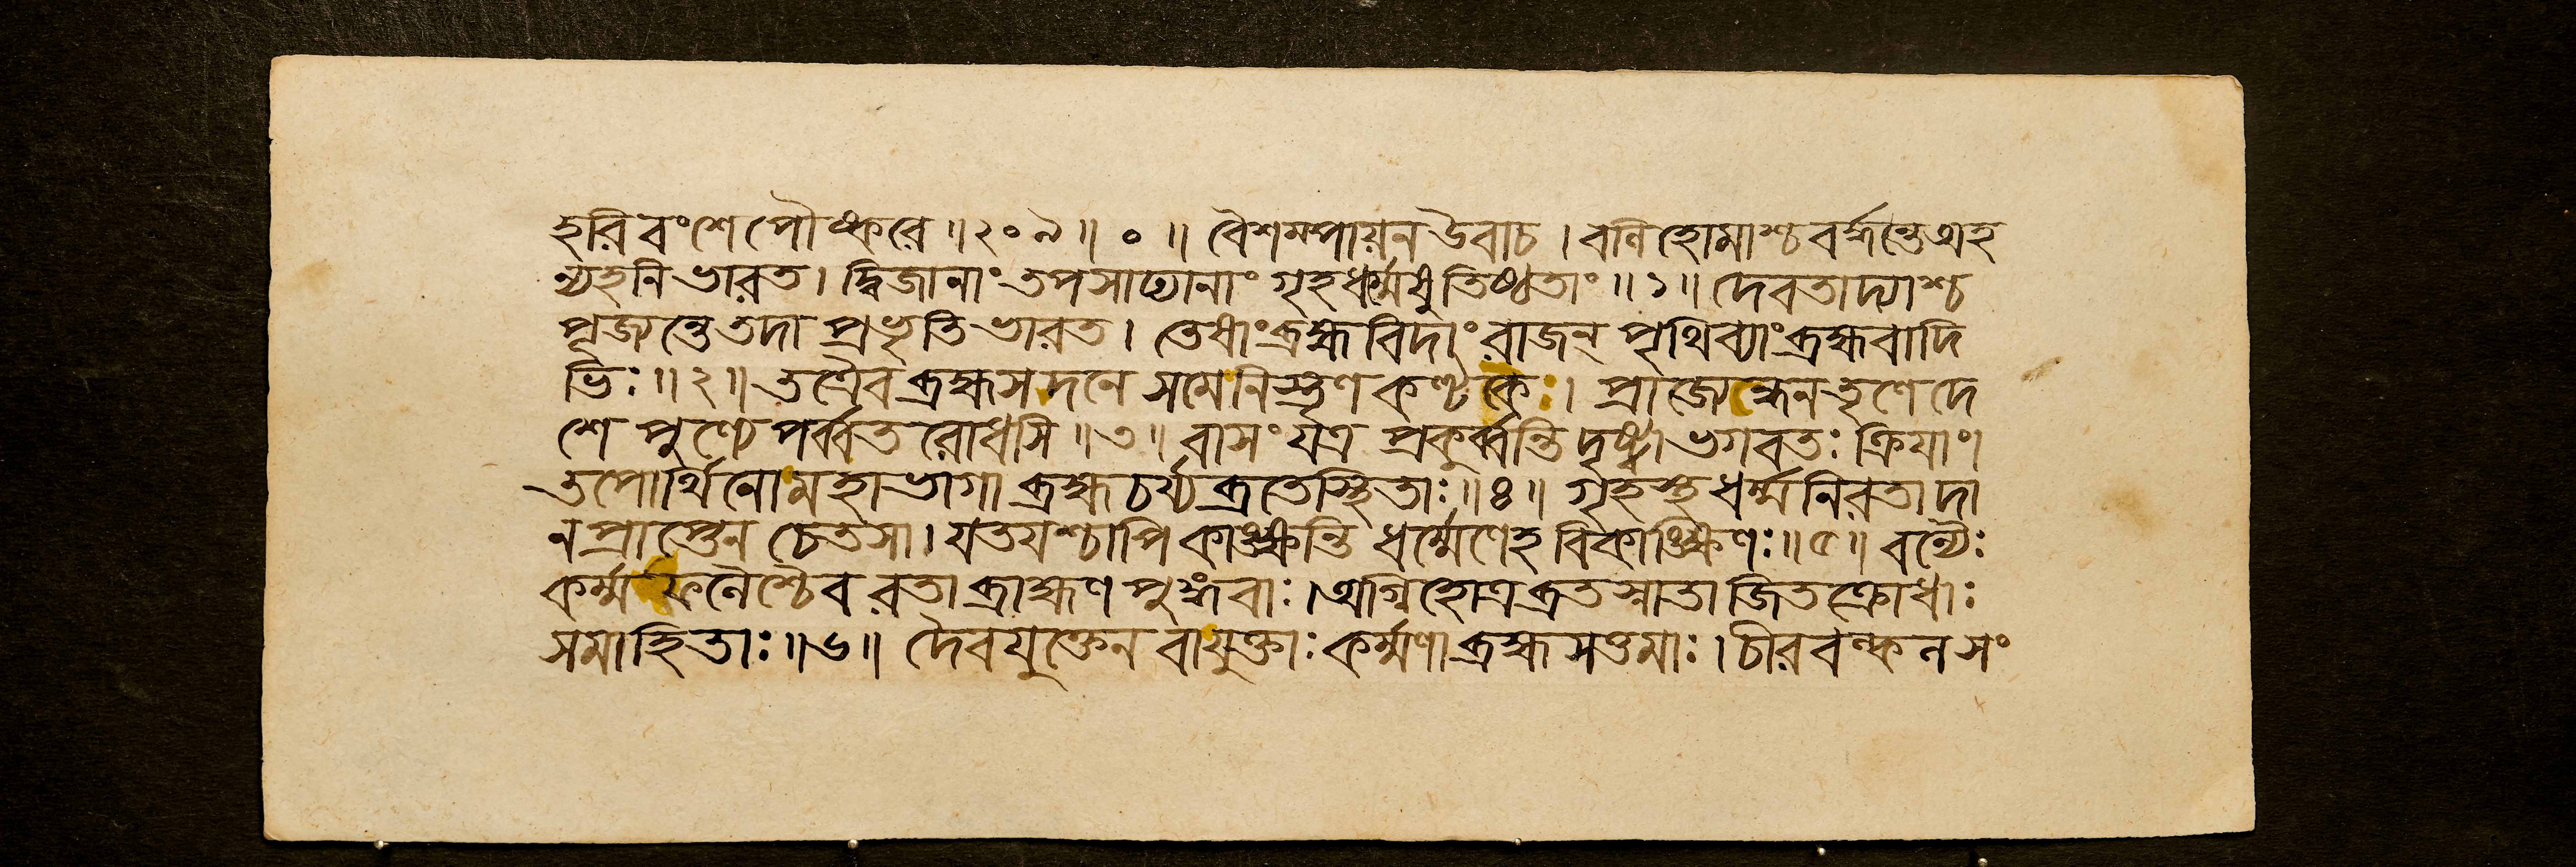 হরিবংশে পৌষ্করে ॥ ২০৯ ॥ ০ ॥ বৈশম্পায়ন উবাচ । বলিহোমাশ্চ বর্দ্ধন্তে অহ
ন্যহনি ভারত । দ্বিজানাং তপসাঢ্যানাং গৃহধর্ম্মেষু তিষ্ঠতাং ॥ ১ ॥ দেবতাদ্যাশ্চ
পূজ্যন্তে তদা প্রভৃতি ভারত । তেষাং ব্রহ্মবিদাং রাজন্ পৃথিব্যাং ব্রহ্মবাদি
ভিঃ ॥ ২ ॥ তত্রৈব ব্রহ্মসদনে সমে নিস্তৃণকণ্টকে । প্রাজ্যেন্ধনতৃণে দে
শে পুণ্যে পর্ব্বতরোধসি ॥ ৩ ॥ বাসং যত্র প্রকুর্ব্বন্তি দৃষ্ট্বা ভগবতঃ ক্রিয়াং ।
তপোর্থিনো মহাভাগা ব্রহ্মচর্য্যব্রতে স্থিতাঃ ॥ ৪ ॥ গৃহস্থধর্ম্মনিরতা দা
নপ্রাপ্তেন চেতসা । যতয়শ্চাপি কাঙ্ক্ষন্তি ধর্ম্মেণেহ বিকাঙ্ক্ষিণঃ ॥ ৫ ॥ বন্যৈঃ
কর্ম্মফলৈশ্চৈব রতা ব্রাহ্মণপুঙ্গবাঃ । অগ্নিহোত্রব্রতস্নাতা জিতক্রোধাঃ
সমাহিতাঃ ॥ ৬ ॥ দৈবযুক্তেন বা যুক্তাঃ কর্ম্মণা ব্রহ্মসত্তমাঃ । চীরবল্কলসং